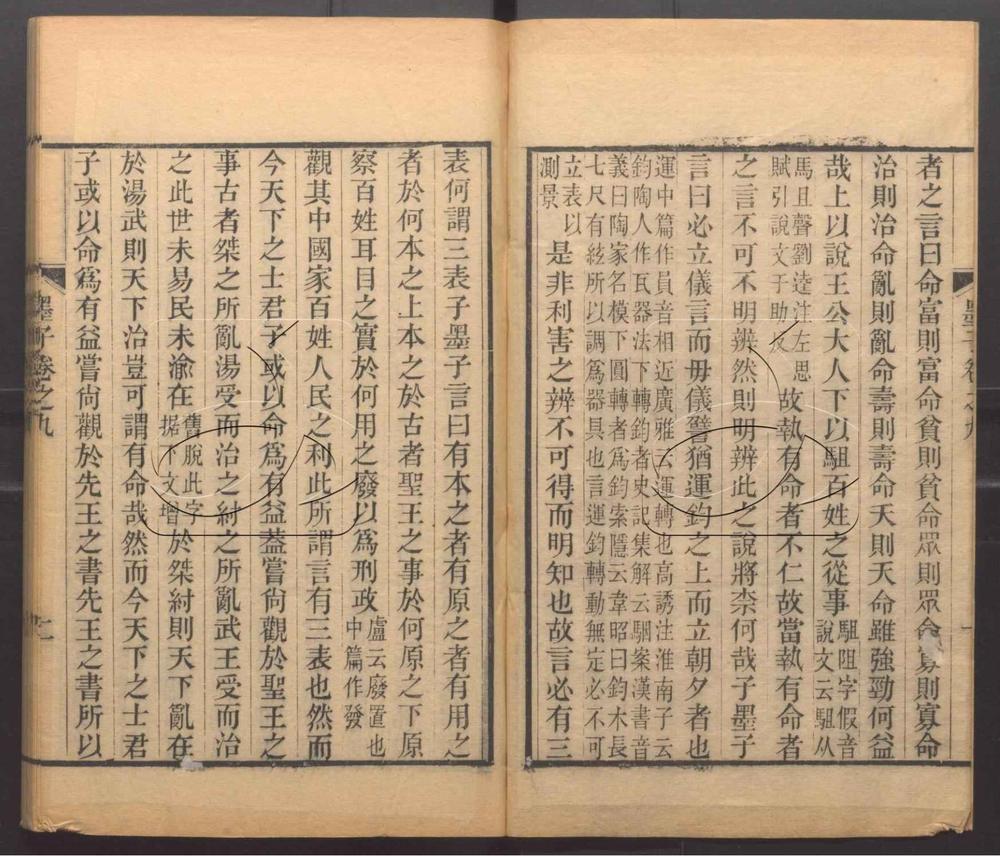 者之言曰命富則富命貧則貧命眾則眾命寡則寡命
治則治命亂則亂命壽則壽命夭則夭命雖強勁何益
哉上以說王公大人下以駔百姓之從事駔阻字假音說文云駔从
馬且聲劉逵注左思賦引說文于助反故執有命者不仁故當執有命者
之言不可不明辨然則明辨此之說將柰何哉子墨子
言曰必立儀言而毋儀譬猶運鈞之上而立朝夕者也
運中篇作員音相近廣雅云運轉也高誘注淮南子云
鈞陶人作瓦器法下轉鈞者史記集解云駰案漢書音
義曰陶家名模下圓轉者爲鈞索隱云韋昭曰鈞木長
七尺有絃所以調爲器具也言運鈞轉動無定必不可
立表以測景是非利害之辨不可得而明知也故言必有三
墨子卷之九
一
表何謂三表子墨子言曰有本之者有原之者有用之
者於何本之上本之於古者聖王之事於何原之下原
察百姓耳目之實於何用之廢以爲刑政盧云廢置也中篇作發
觀其中國家百姓人民之利此所謂言有三表也然而
今天下之士君子或以命爲有益蓋嘗尚觀於聖王之
事古者桀之所亂湯受而治之紂之所亂武王受而治
之此世未易民未渝在舊脫此字据下文增於桀紂則天下亂在
於湯武則天下治豈可謂有命哉然而今天下之士君
子或以命爲有益嘗尚觀於先王之書先王之書所以
墨子卷之九
二